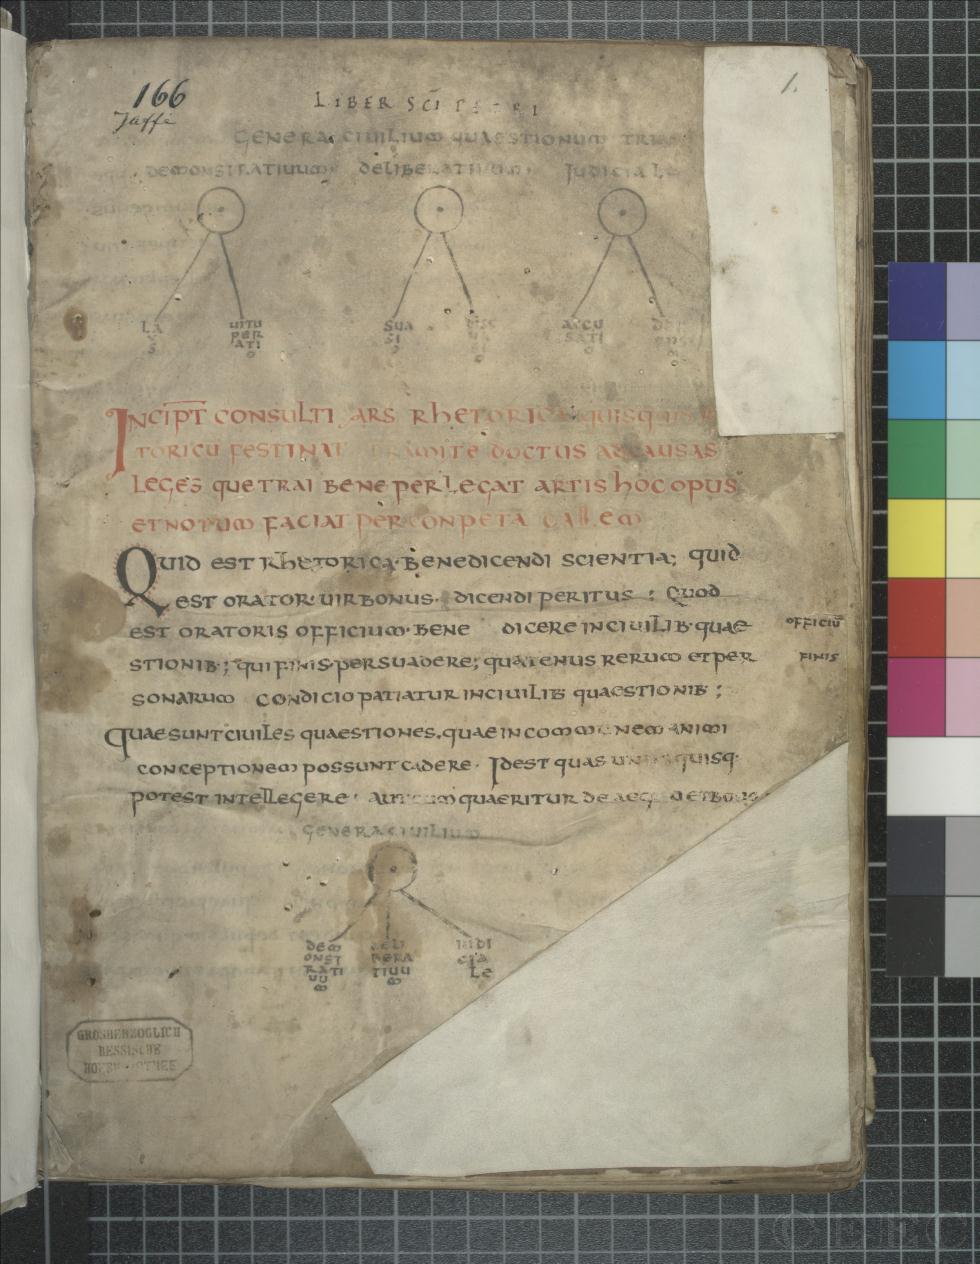 166
Jaffé
1.
LIBER SCI PETRI
GENERA CIUILIUM QUAESTIONUM TRIA
DEMONSTRATIUUM DELIBERATIUUM JUDICIALE
LA
S
UITU
PER
ATI
O
SUA
SI
O
ACCU
SATI
O
INCIPT CONSULTI ARS RHETORICA QUISQUIS
TORICU FESTINAT TRAMITE DOCTUS AD CAUSAS
LEGES QUE TRAI BENE PERLEGAT ARTIS HOC OPUS
ET NOTUM FACIAT PER CONPETA CALLEM
QUID EST RHETORICA· BENE DICENDI SCIENTIA; QUID
EST ORATOR· UIR BONUS· DICENDI PERITUS : QUOD
EST ORATORIS OFFICIUM· BENE DICERE IN CIUILIB· QUAE
OFFICIU
STIONIB·; QUI FINIS· PERSUADERE; QUATENUS RERUM ET PER
FINIS
SONARUM CONDICIO PATIATUR IN CIUILIB QUAESTIONIB ;
QUAE SUNT CIUILES QUAESTIONES. QUAE IN COMMUNEM ANIMI
CONCEPTIONEM POSSUNT CADERE· IDEST QUAS UNUSQUISQ·
POTEST INTELLEGERE· QUAERITUR DE AEQUO ET BONO
GENERA CIUILIUM
DEM
ONST
RATI
UU
M
DELI
BERA
TIUU
M
IUDI
CIA
LE
GROSHERZOGLICH
HESSISCHE
HOFBIBLIOTHEK
© CEEC